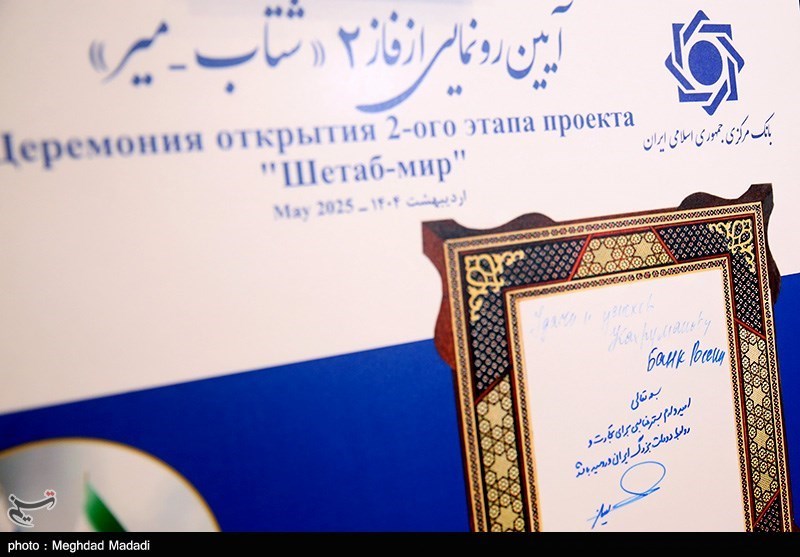 آیین رونمایی از فاز ۲ «شتاب - میر»
بانک مرکزی جمهوری اسلامی ایران
Церемония открытия 2-ого этапа проекта
"Шетаб-мир"
May 2025 ـ اردیبهشت ۱۴۰۴
Удачи и успехов
Банк России
بسمه تعالی
امیدوارم بستر مناسبی برای تجارت و
روابط دو ملت بزرگ ایران و روسیه باشد
تسنیم
photo : Meghdad Madadi